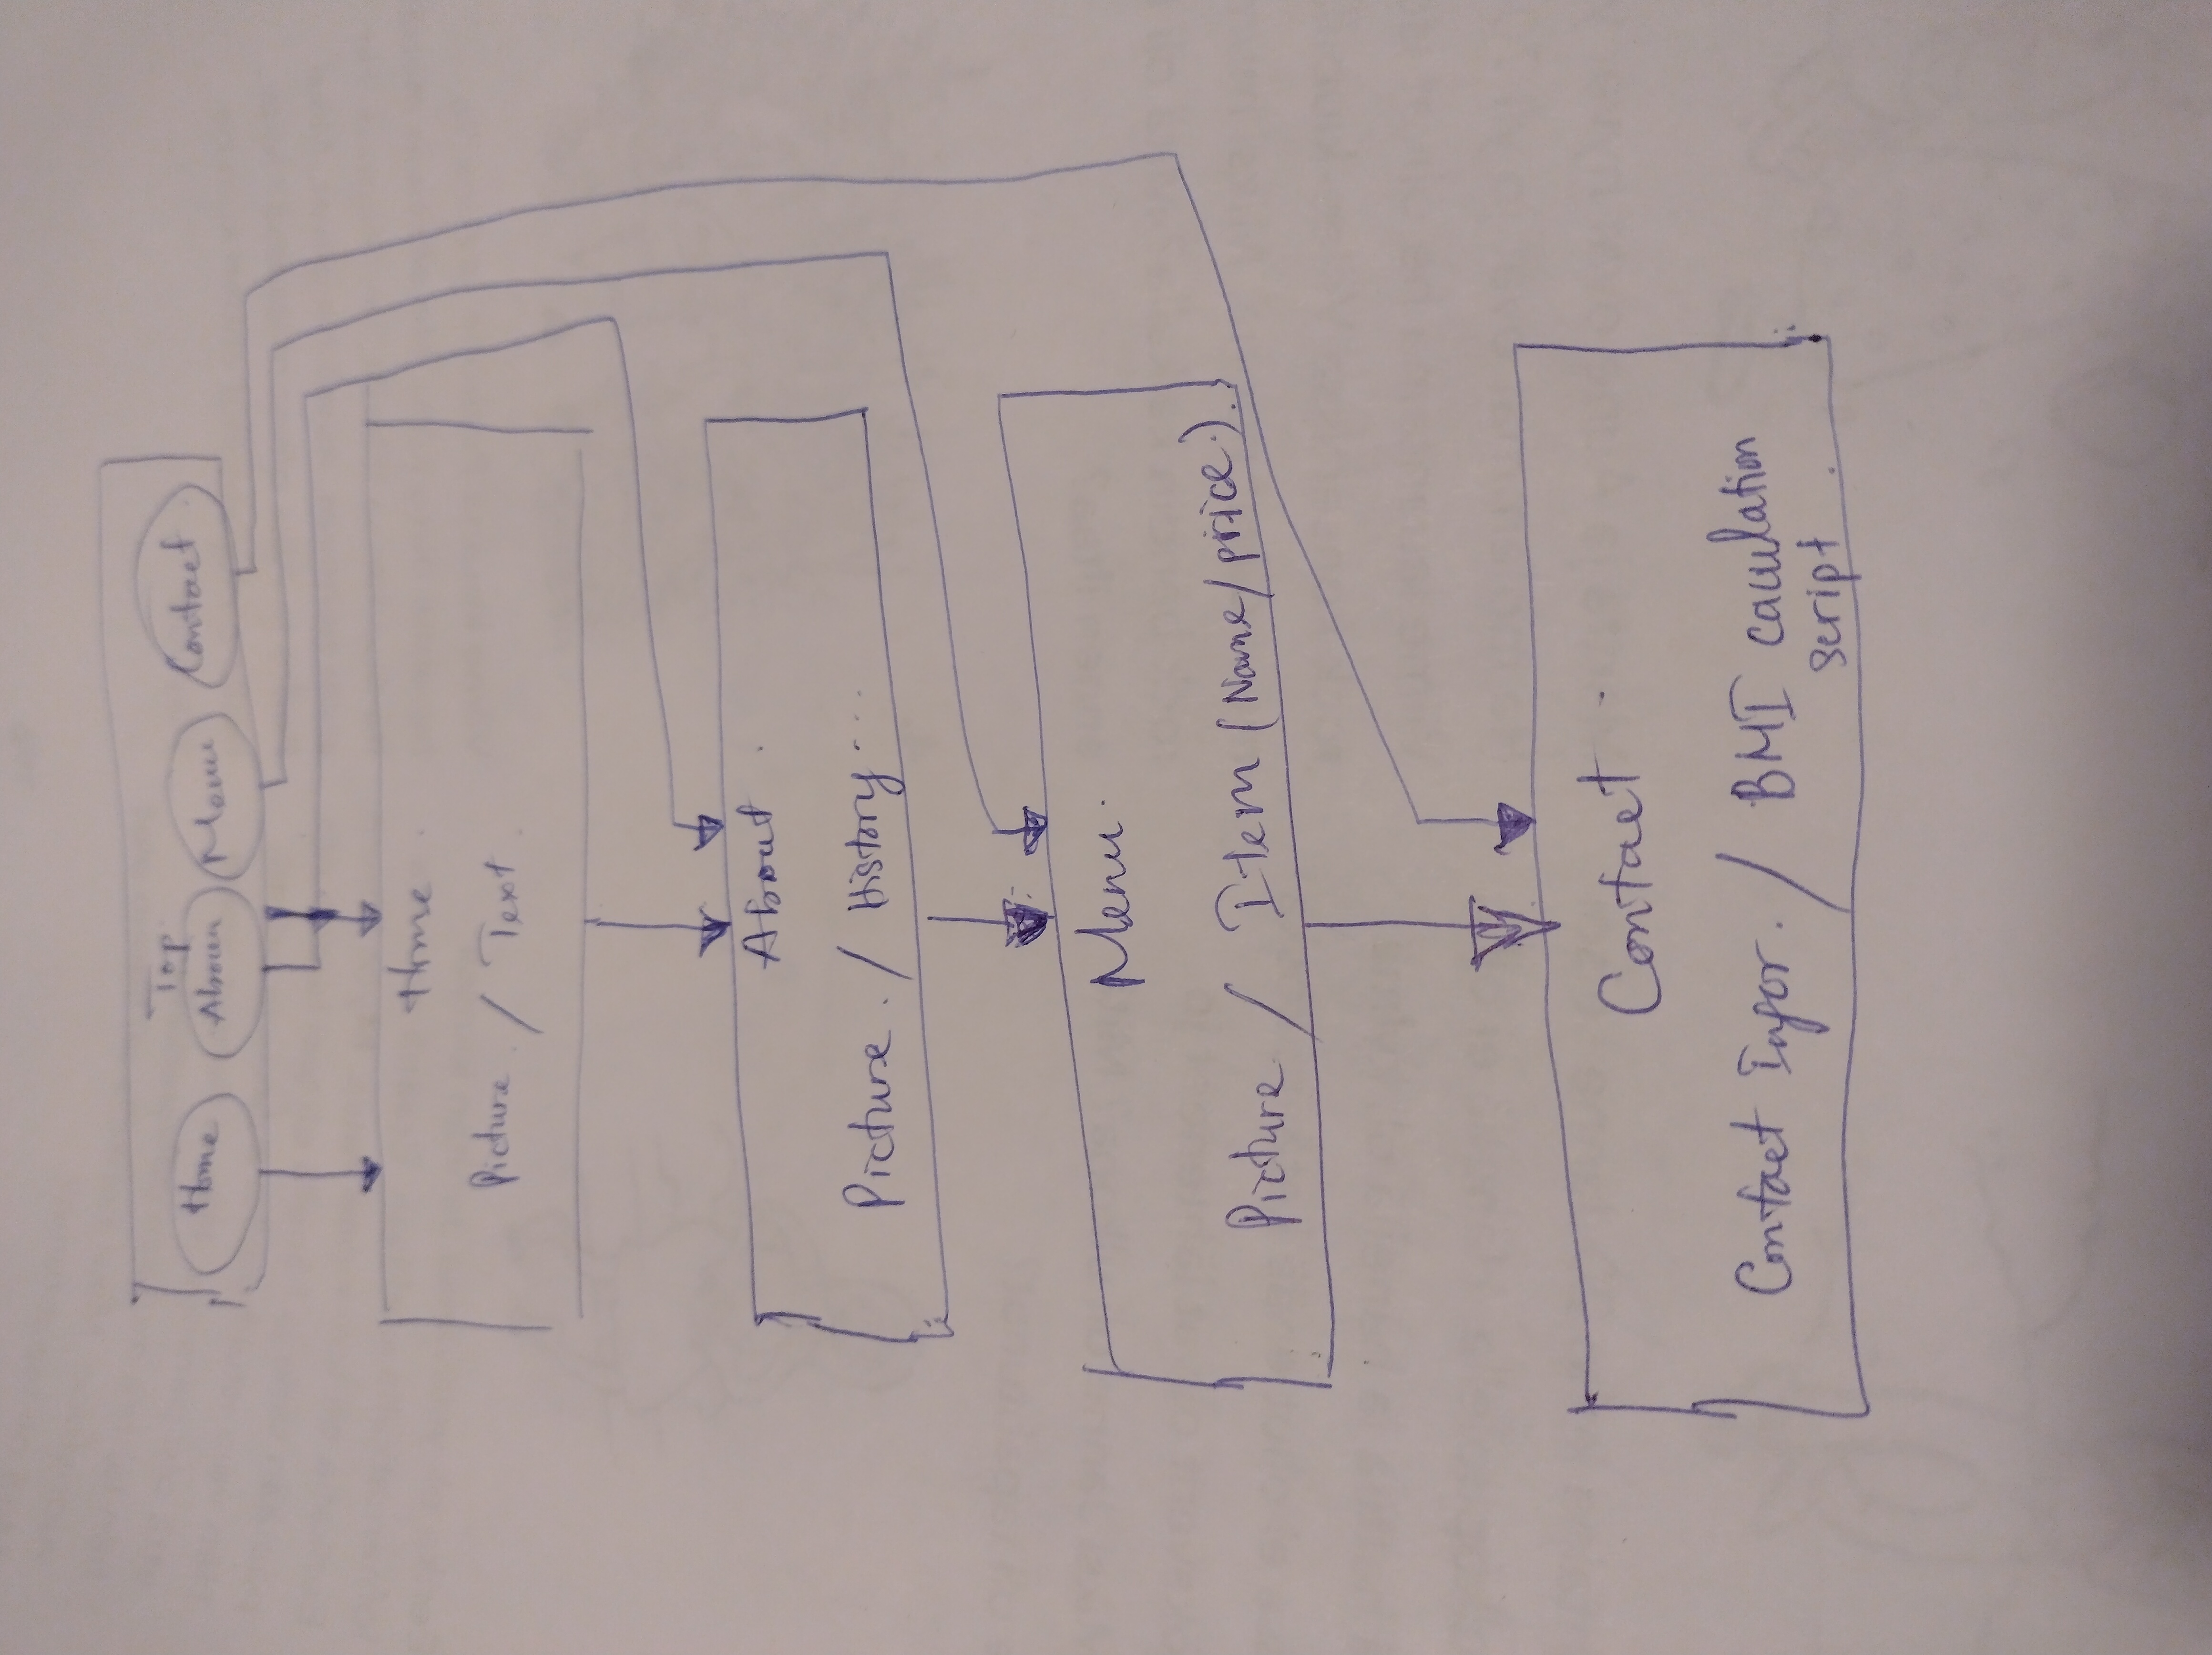 Top
Home Aboun Menu Contact
Home
Picture / Text
About
Picture . / History ...
Menu.
Picture / Item (Name/price.).
Contact
Contact Infor. / BMI caculation
script